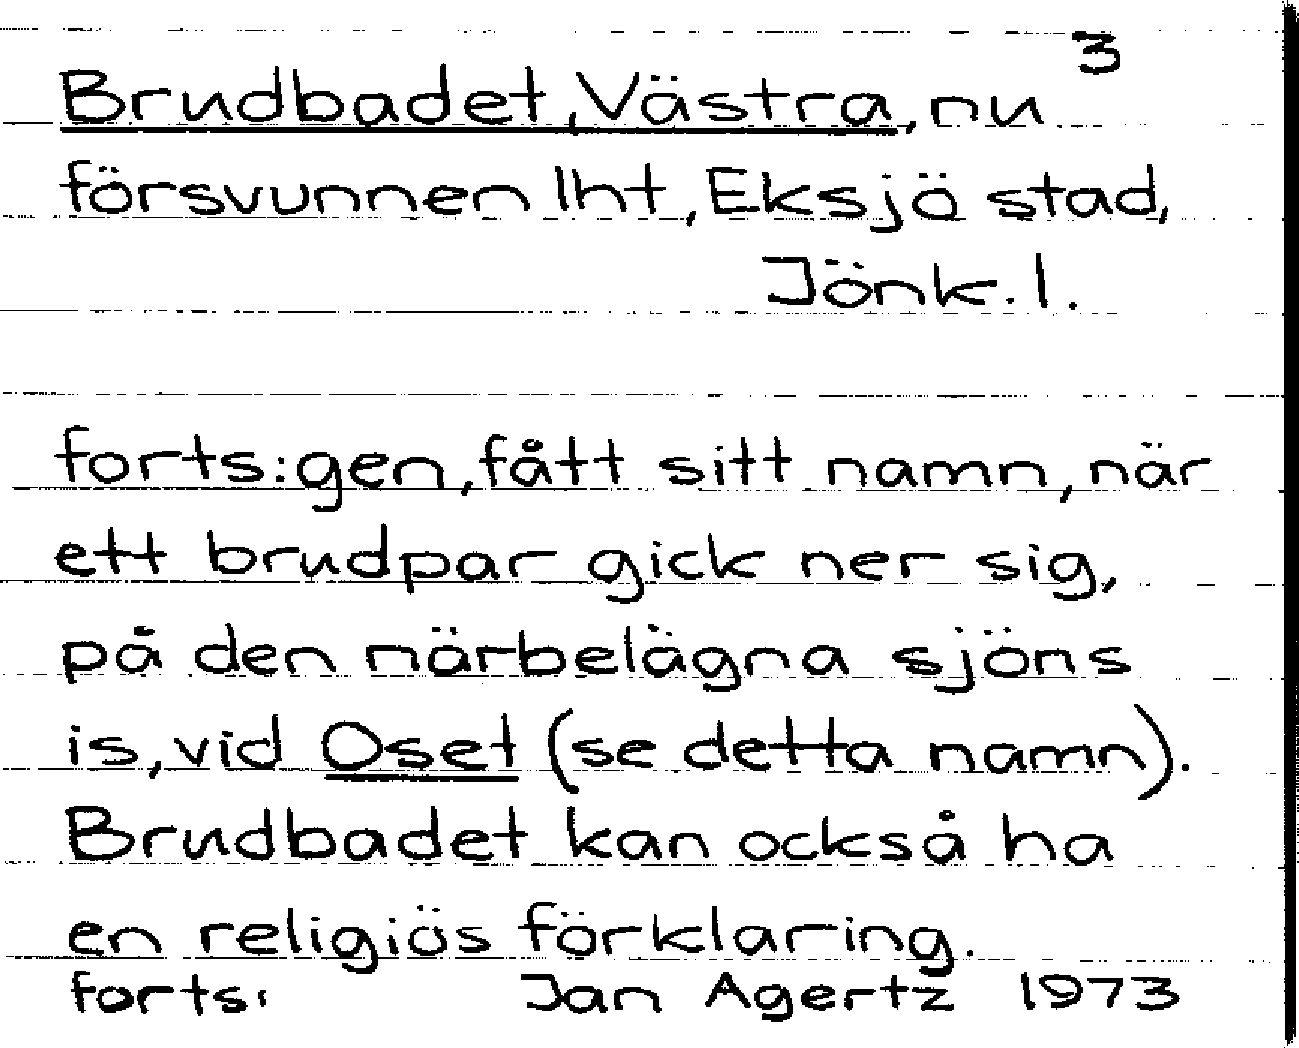 3
Brudbadet, Västra, nu
försvunnen lht, Eksjö stad,
Jönk. l.
forts: gen, fått sitt namn, när
ett brudpar gick ner sig,
på den närbelägna sjöns
is, vid Oset (se detta namn).
Brudbadet kan också ha
en religiös förklaring.
forts: Jan Agertz 1973